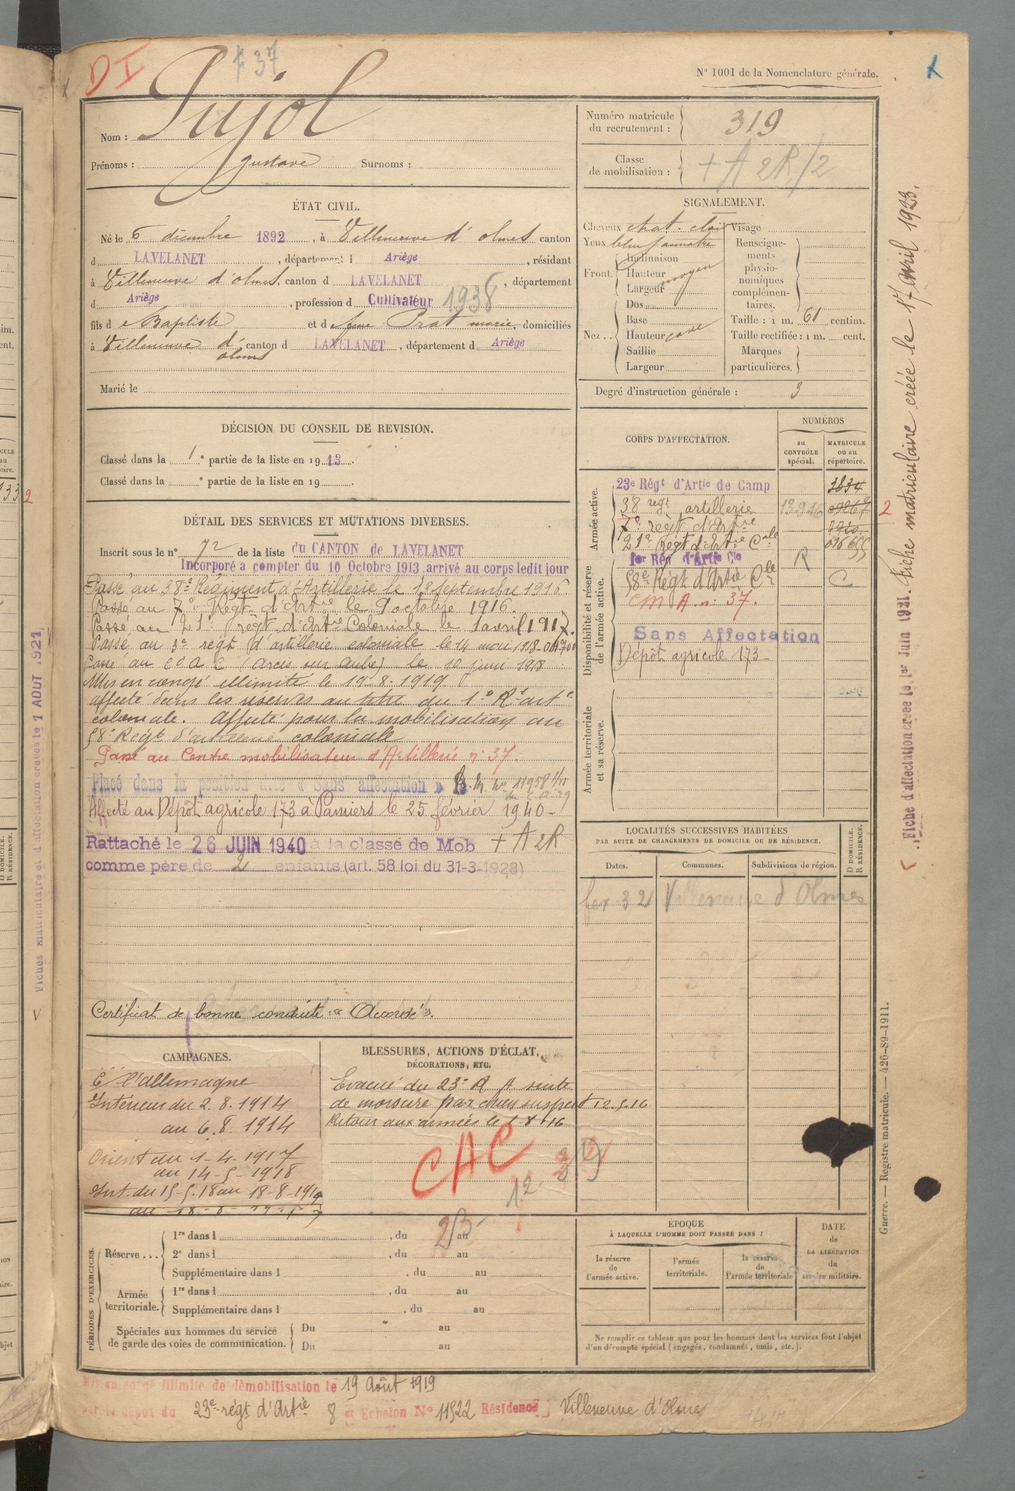 DI
F 37
N° 1001 de la Nomenclature générale.
Nom : Pujol
Prénoms : Gustave Surnoms :
Numéro matricule du recrutement : 319
Classe de mobilisation : + A 2R/2
ÉTAT CIVIL.
Né le 6 décembre 1892, à Villeneuve d'olmes canton
d LAVELANET, département d Ariège, résidant
à Villeneuve d'olmes canton d LAVELANET, département
d Ariège, profession d Cultivateur 1938
fils d e Baptiste et d e feue Prat marie, domiciliés
à Villeneuve d'olmes canton d LAVELANET, département d Ariège
Marié le
SIGNALEMENT.
Cheveux chat. clair Visage
Yeux bleu
Front. Inclinaison
Hauteur moyen
Largeur
Nez.. Dos
Base
Hauteur cave
Saillie
Largeur
Renseignements physionomiques complémentaires.
Taille : 1 m. 61 centim.
Taille rectifiée : 1 m. cent.
Marques particulières.
Degré d'instruction générale : 3
DÉCISION DU CONSEIL DE REVISION.
Classé dans la 1e partie de la liste en 1913.
Classé dans la e partie de la liste en 19
CORPS D'AFFECTATION.
NUMÉROS
au CONTRÔLE spécial.
MATRICULE ou au répertoire.
Armée active.
23e Régt d'Artie de Camp 3834
38 regt artillerie
7e regt d'Artie
21e Regt d'Artie Cale
1er Rég d'Artie Cle R
Disponibilité et réserve de l'armée active.
58e Regt d'Artie Cle
CM A. n° 37.
Sans Affectation
Dépôt agricole 173
Armée territoriale et sa réserve.
DÉTAIL DES SERVICES ET MUTATIONS DIVERSES.
Inscrit sous le n° 72 de la liste du CANTON de LAVELANET
Incorporé à compter du 10 Octobre 1913, arrivé au corps ledit jour
Passé au 38e Régiment d'Artillerie le 18 septembre 1916.
Passé au 7e Regt d'Artie le 9 octobre 1916.
Passé au 21e regt d'Artie Coloniale le 1 avril 1917.
Passé au 3e regt d'artillerie coloniale le 14 mars 1918
Passé au C O A C (Arcis sur Aube) le 10 juin 1918
Mis en congé illimité le 19.8.1919
affecté dans les réserves au titre du 1e R art
coloniale. Affecté pour la mobilisation au
58e Regt d'artillerie coloniale
Passé au Centre mobilisateur d'Artillerie n° 37.
Placé dans la position dite « Sans affectation »
Affecté au Dépôt agricole 173 à Pamiers le 25 février 1940
Rattaché le 26 JUIN 1940 à la classe de Mob + A 2R
comme père de 2 enfants (art. 58 loi du 31-3-1928)
Certificat de bonne conduite « Accordé ».
LOCALITÉS SUCCESSIVES HABITÉES
PAR SUITE DE CHANGEMENTS DE DOMICILE OU DE RÉSIDENCE.
Dates. Communes. Subdivisions de région.
D DOMICILE. R RÉSIDENCE.
fev 32 Villeneuve d'Olmes
CAMPAGNES.
Ce l'allemagne
Intérieur du 2.8.1914
au 6.8.1914
Orient du 1-4-1917
au 14-5-1918
Int. du 15-5.18 au 18-8-1919
BLESSURES, ACTIONS D'ÉCLAT,
DÉCORATIONS, ETC.
Evacué du 23e R A suite
de morsure par chien suspect 12.5.16
Retour aux armées le 1-8-16
CAC
PÉRIODES D'EXERCICES.
Réserve... 1re dans l , du au
2e dans l , du au
Supplémentaire dans l , du au
Armée territoriale. 1re dans l , du au
Supplémentaire dans l , du au
Spéciales aux hommes du service de garde des voies de communication. Du au
Du au
ÉPOQUE
À LAQUELLE L'HOMME DOIT PASSER DANS :
la réserve de l'armée active.
l'armée territoriale.
la réserve de l'armée territoriale
DATE de LA LIBÉRATION du service militaire.
Ne remplir ce tableau que pour les hommes dont les services font l'objet
d'un décompte spécial (engagés, condamnés, omis, etc.).
Mis en congé illimité de démobilisation le 19 Août 1919
par le dépôt du 23e regt d'Artie 8 et Echelon N° 11922 Résidence Villeneuve d'Olmes
Fiche d'affectation créée le 1er Juin 1921. Fiche matriculaire créée le 17 avril 1923.
Guerre. — Registre matricule. — 426-89-1911.
Fiches matriculaire et d'affectation créées le 1 AOUT 1921